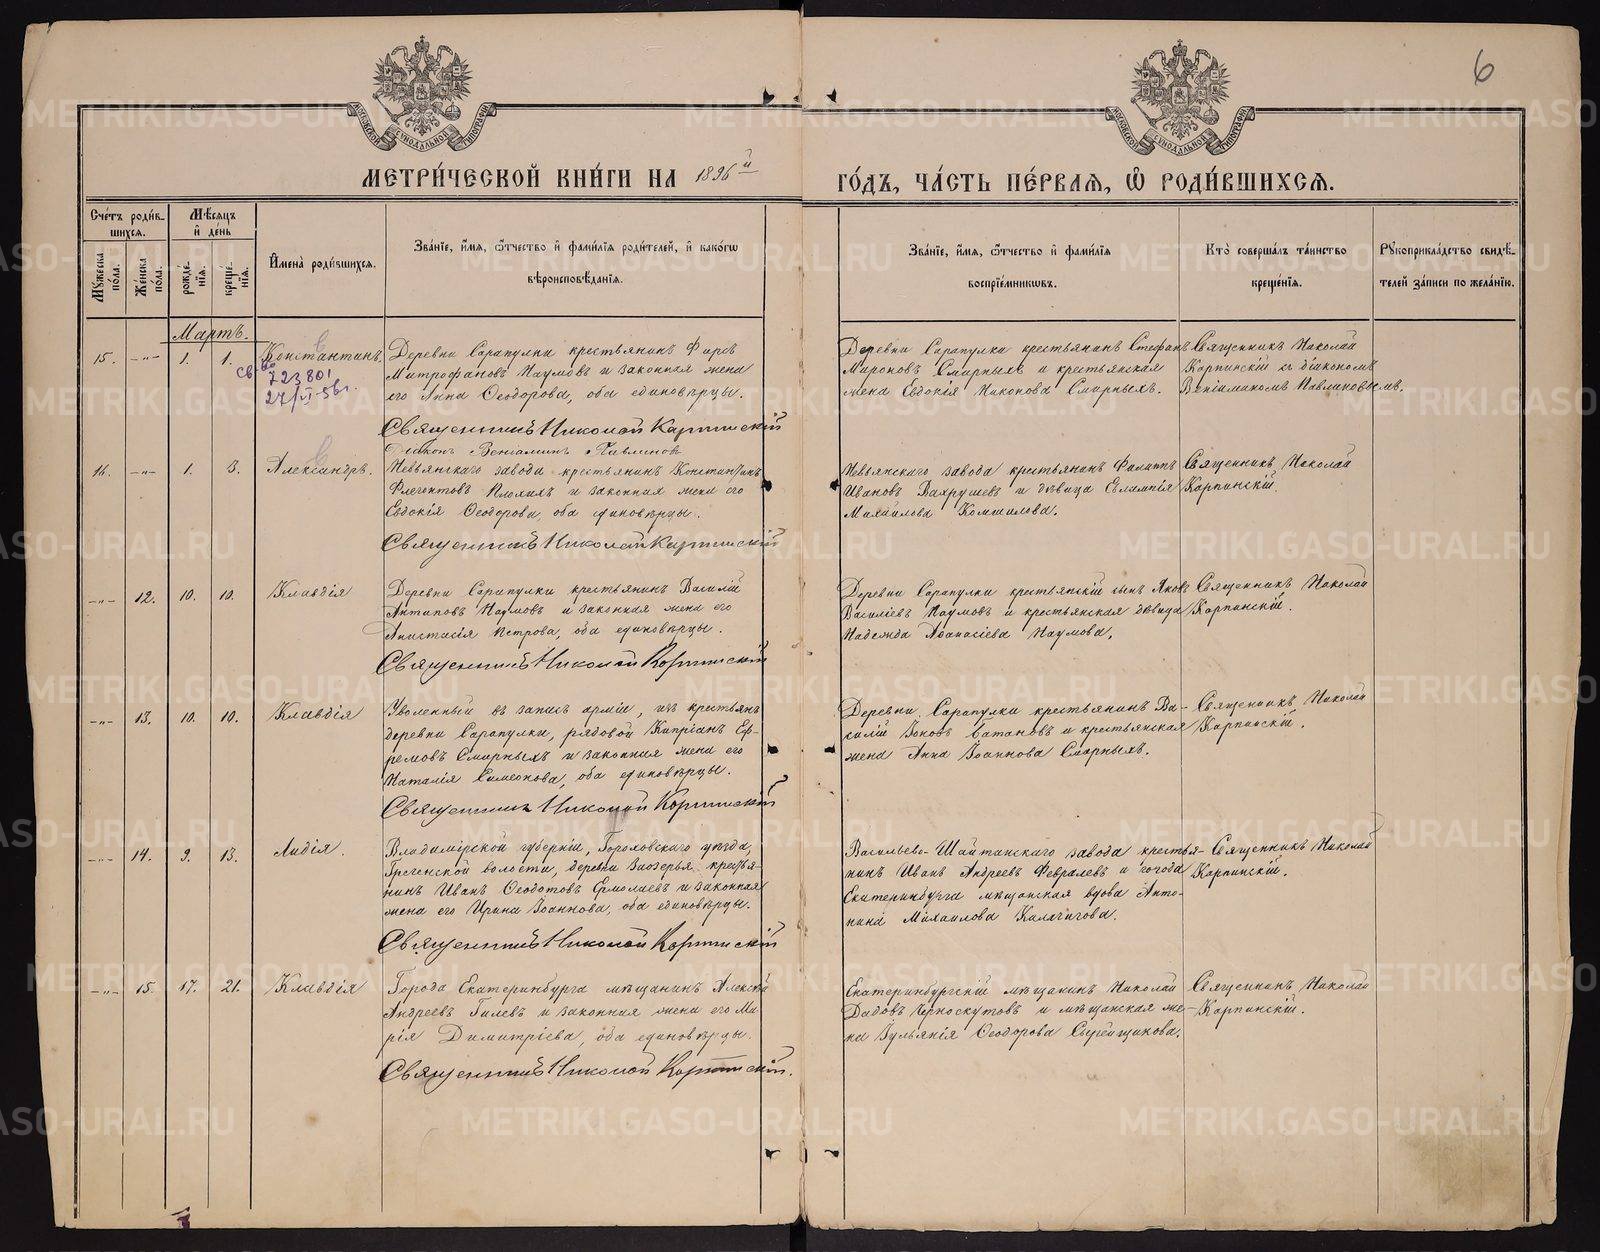 6
МОСКОВСКОЙ СѴНОДАЛЬНОЙ ТИПОГРАФІИ
МОСКОВСКОЙ СѴНОДАЛЬНОЙ ТИПОГРАФІИ
МЕТРИ́ЧЕСКОЙ КНИ́ГИ НА 1896й ГО́ДЪ, ЧА́СТЬ ПЕ́РВАЯ, Ѡ РОДИ́ВШИХСЯ.
Сче́тъ роди́в-
шихся.
Мѣ́сяцъ
и҆ де́нь
Мꙋ́жеска по́ла.
Же́нска по́ла.
рожде́-
нїя.
креще́-
нїя.
И҆мена̀ роди́вшихся.
Зва́нїе, и҆́мя, ѻ҆́тчество и҆ фами́лїя роди́телей, и҆ како́гѡ
вѣроисповѣ́данїя.
Зва́нїе, и҆́мя, ѻ҆́тчество и҆ фами́лїя
воспрїе́мникѡвъ.
Кто̀ соверша́лъ та́инство
креще́нїя.
Рꙋкоприкла́дство свидѣ́-
телей за́писи по жела́нїю.
Мартъ.
15. —„— 1. 1. Константинъ.
св-во
723801
27/VI-56г.
Деревни Сарапулки крестьянинъ Фирсъ
Митрофановъ Наумовъ и законная жена
его Анна Ѳеодорова, оба единовѣрцы.
Священникъ Николай Карпинскій
Діаконъ Веніаминъ Павлиновъ
Деревни Сарапулка крестьянинъ Стефанъ
Мироновъ Смирныхъ и крестьянская
жена Евдокія Никонова Смирныхъ.
Священникъ Николай
Карпинскій съ діакономъ
Веніаминомъ Павлиновымъ.
16. —„— 1. 3. Александръ.
Невьянскаго завода крестьянинъ Константинъ
Флегонтовъ Плохихъ и законная жена его
Евдокія Ѳеодорова, оба единовѣрцы.
Священникъ Николай Карпинскій
Невьянскаго завода крестьянинъ Филиппъ
Ивановъ Вахрушевъ и дѣвица Евлампія
Михайлова
Священникъ Николай
Карпинскій.
—„— 12. 10. 10. Клавдія
Деревни Сарапулки крестьянинъ Василій
Антиповъ Наумовъ и законная жена его
Анистасія Петрова, оба единовѣрцы.
Священникъ Николай Карпинскій
Деревни Сарапулки крестьянскій сынъ Яковъ
Василіевъ Наумовъ и крестьянская дѣвица
Надежда Аѳанасіева Наумова.
Священникъ Николай
Карпинскій.
—„— 13. 10. 10. Клавдія
Уволенный въ запасъ арміи, изъ крестьянъ
деревни Сарапулки, рядовой Кипріанъ Еф-
ремовъ Смирныхъ и законная жена его
Наталія Симеонова, оба единовѣрцы.
Священникъ Николай Карпинскій
Деревни Сарапулки крестьянинъ Ва-
силій Іоновъ Сатановъ и крестьянская
жена Анна Іоаннова Смирныхъ.
Священникъ Николай
Карпинскій.
—„— 14. 9. 13. Лидія.
Владимірской губерніи, Гороховскаго уѣзда,
волости, деревни Заозерья крестья-
нинъ Иванъ Ѳеодотовъ Ермолаевъ и законная
жена его Ирина Іоаннова, оба единовѣрцы.
Священникъ Николай Карпинскій
Васильево-Шайтанскаго завода крестья-
нинъ Иванъ Андреевъ Февралевъ и города
Екатеринбурга мѣщанская вдова Анто-
нина Михаилова Калачигова.
Священникъ Николай
Карпинскій.
—„— 15. 17. 21. Клавдія
Города Екатеринбурга мѣщанинъ Алексѣй
Андреевъ Гилевъ и законная жена его Ма-
рія Димитріева, оба единовѣрцы.
Священникъ Николай Карпинскій.
Екатеринбургскій мѣщанинъ Николай
Черноскутовъ и мѣщанская же-
на Іульянія Ѳеодорова Сырейщикова.
Священникъ Николай
Карпинскій.
METRIKI.GASO-URAL.RU